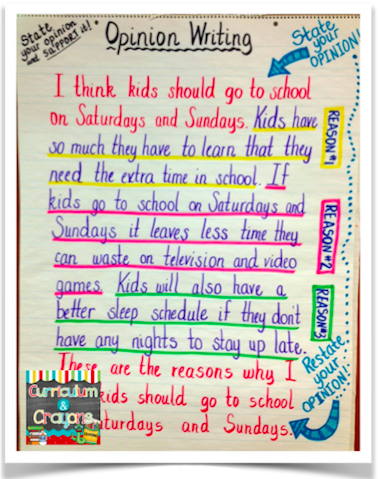 State
your opinion
and SUPPORT it!
Opinion Writing
State
your
OPINION!
I think kids should go to school
on Saturdays and Sundays. Kids have
so much they have to learn that they
need the extra time in school. If
kids go to school on Saturdays and
Sundays it leaves less time they
can waste on television and video
games. Kids will also have a
better sleep schedule if they don't
have any nights to stay up late.
These are the reasons why I
kids should go to school
turdays and Sundays.
REASON #1
REASON #2
REASON #3
Restate
your
OPINION!
Curriculum
&
Crayons